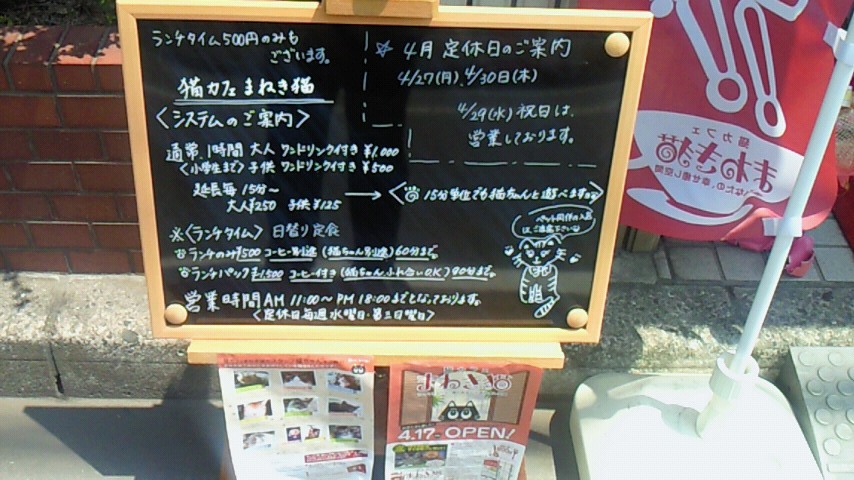 ランチタイム500円のみも
ございます。
猫カフェまねき猫
〈システムのご案内〉
通常1時間 大人 ワンドリンク付き ¥1,000
〈小学生まで〉子供 ワンドリンク付き ¥500
延長毎 15分〜
大人¥250 子供¥125
→〈15分単位でも猫ちゃんと遊べます〉
※〈ランチタイム〉日替り定食
ランチのみ¥500 コーヒー別途 (猫ちゃん別途) 60分まで。
ランチパック¥1,500 コーヒー付き (猫ちゃんふれ合いO.K) 90分まで。
営業時間 AM 11:00〜PM 18:00までとなっております。
〈定休日毎週水曜日・第三日曜日〉
☆ 4月 定休日のご案内
4/27(月)、4/30日(木)
4/29(水) 祝日は、
営業しております。
ペット同伴の入店
はご遠慮下さい
まねき猫
4.17- OPEN!
猫カフェ
まねき猫
あなたの、幸せ癒し空間